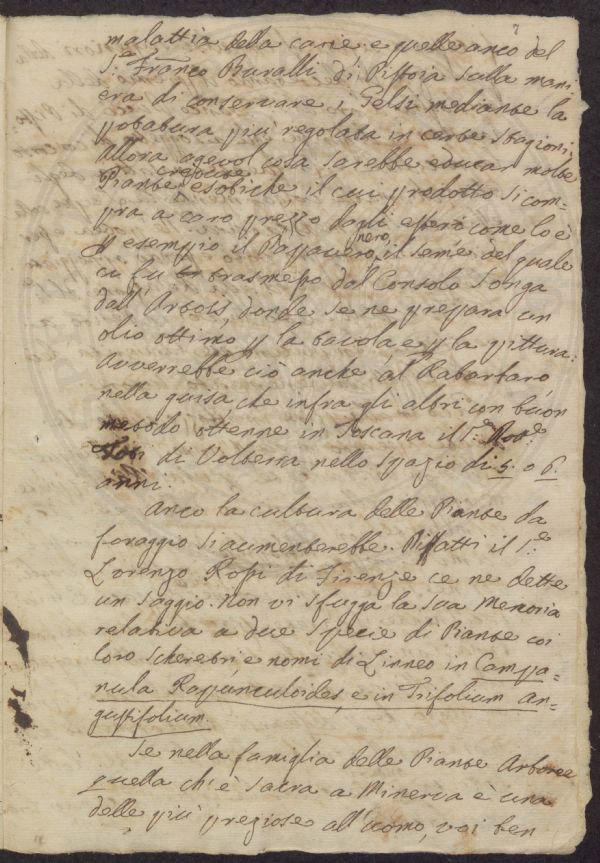 7
malattia della carie e quelle anco del
S.e Franco Buralli di Pistoia sulla mani
era di conservare i Gelsi mediante la
potatura più regolata in certe stagioni;
allora agevol cosa sarebbe educar molte
crescere
Piante esotiche il cui prodotto si com-
pra a caro prezzo dagli esteri come lo è
p esempio il Papavero nero, il seme del quale
ci fu trasmesso dal Consolo Songa
dall' Artois, donde se ne prepara un
olio ottimo p la tavola e p la pittura.
Avverrebbe ciò anche al Rabarbaro
nella guisa, che infra gli altri con buon
metodo ottenne in Toscana il S.e
di Volterra nello spazio di 5. o 6.
anni.
Anco la cultura delle Piante da
foraggio si aumenterebbe. Diffatti il S.e
Lorenzo Rossi di Firenze ce ne dette
un saggio. Non vi sfugga la sua Memoria
relativa a due specie di Piante coi
loro nomi di Linneo in Campa-
nula Rapunculoides, e in Trifolium an-
gustifolium.
Se nella famiglia delle Piante Arboree
quella ch'è sacra a Minerva è una
delle più pregiose all'uomo, voi ben